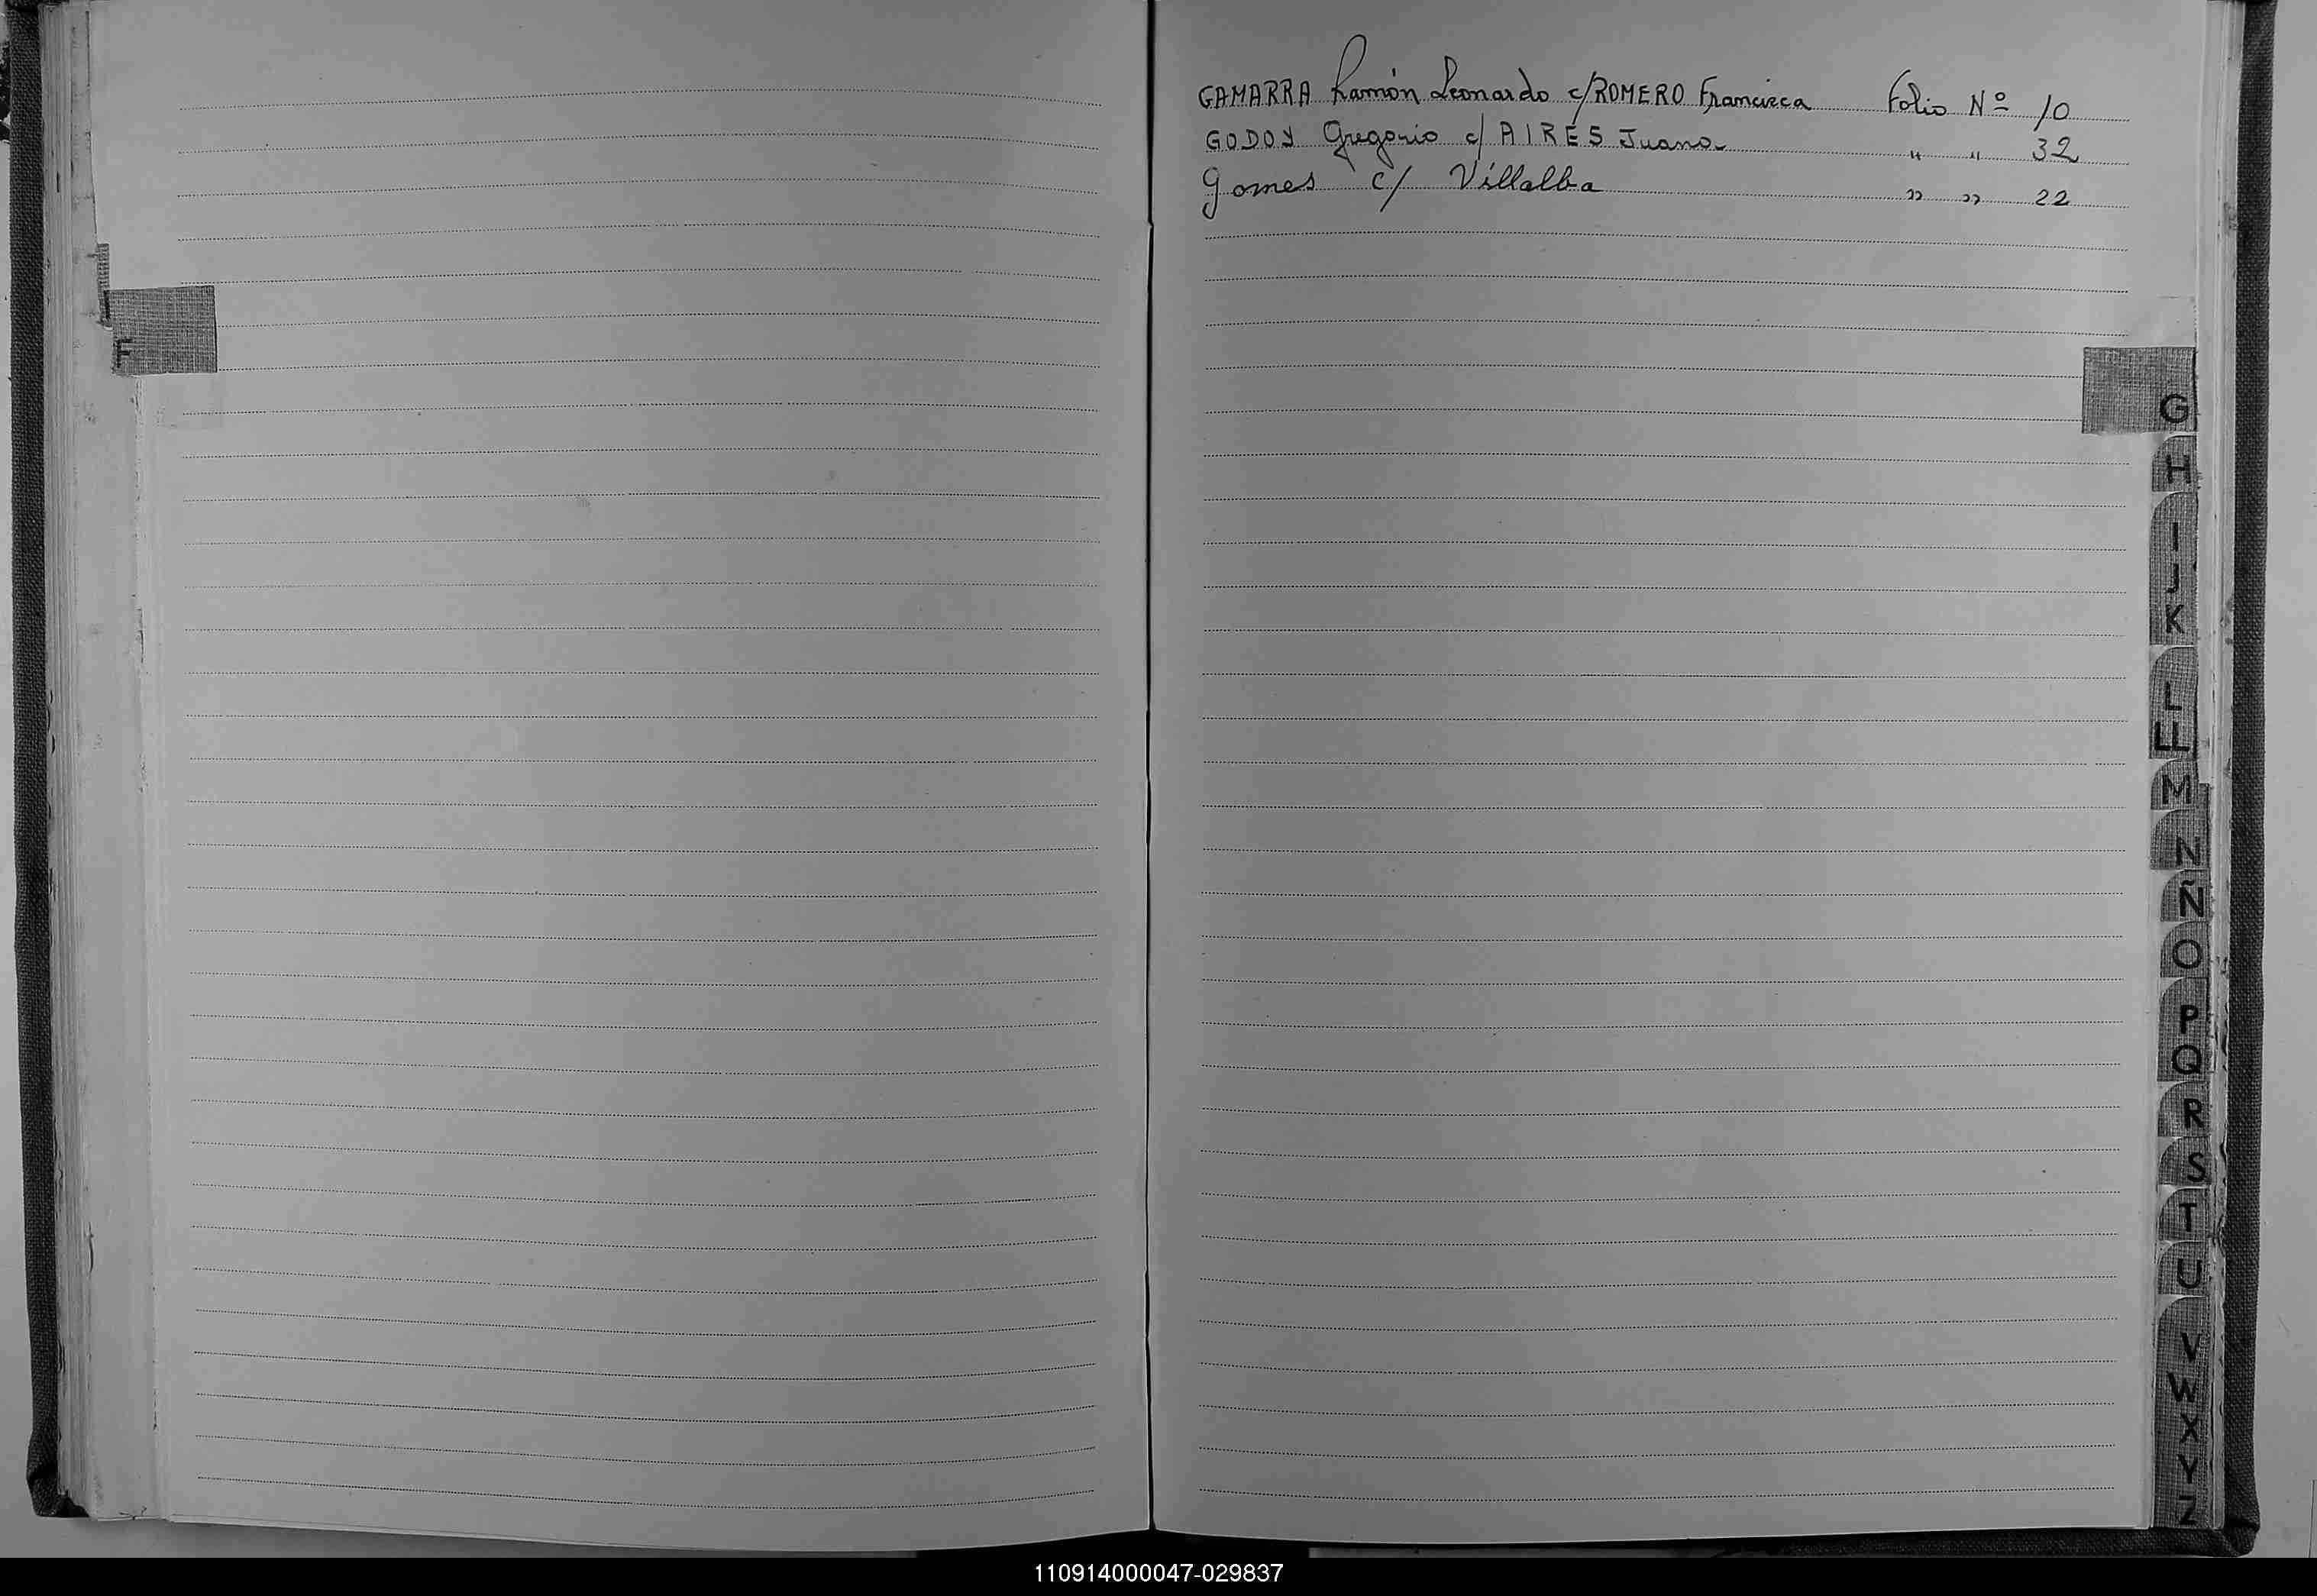 GAMARRA Ramón Leonardo c/ROMERO Francisca Folio Nº 10
GODOY Gregorio c/ AIRES Juana " " 32
Gomes c/ Villalba " " 22
F
G
H
I
J
K
L
LL
M
N
Ñ
O
P
Q
R
S
T
U
V
W
X
Y
Z
110914000047-029837